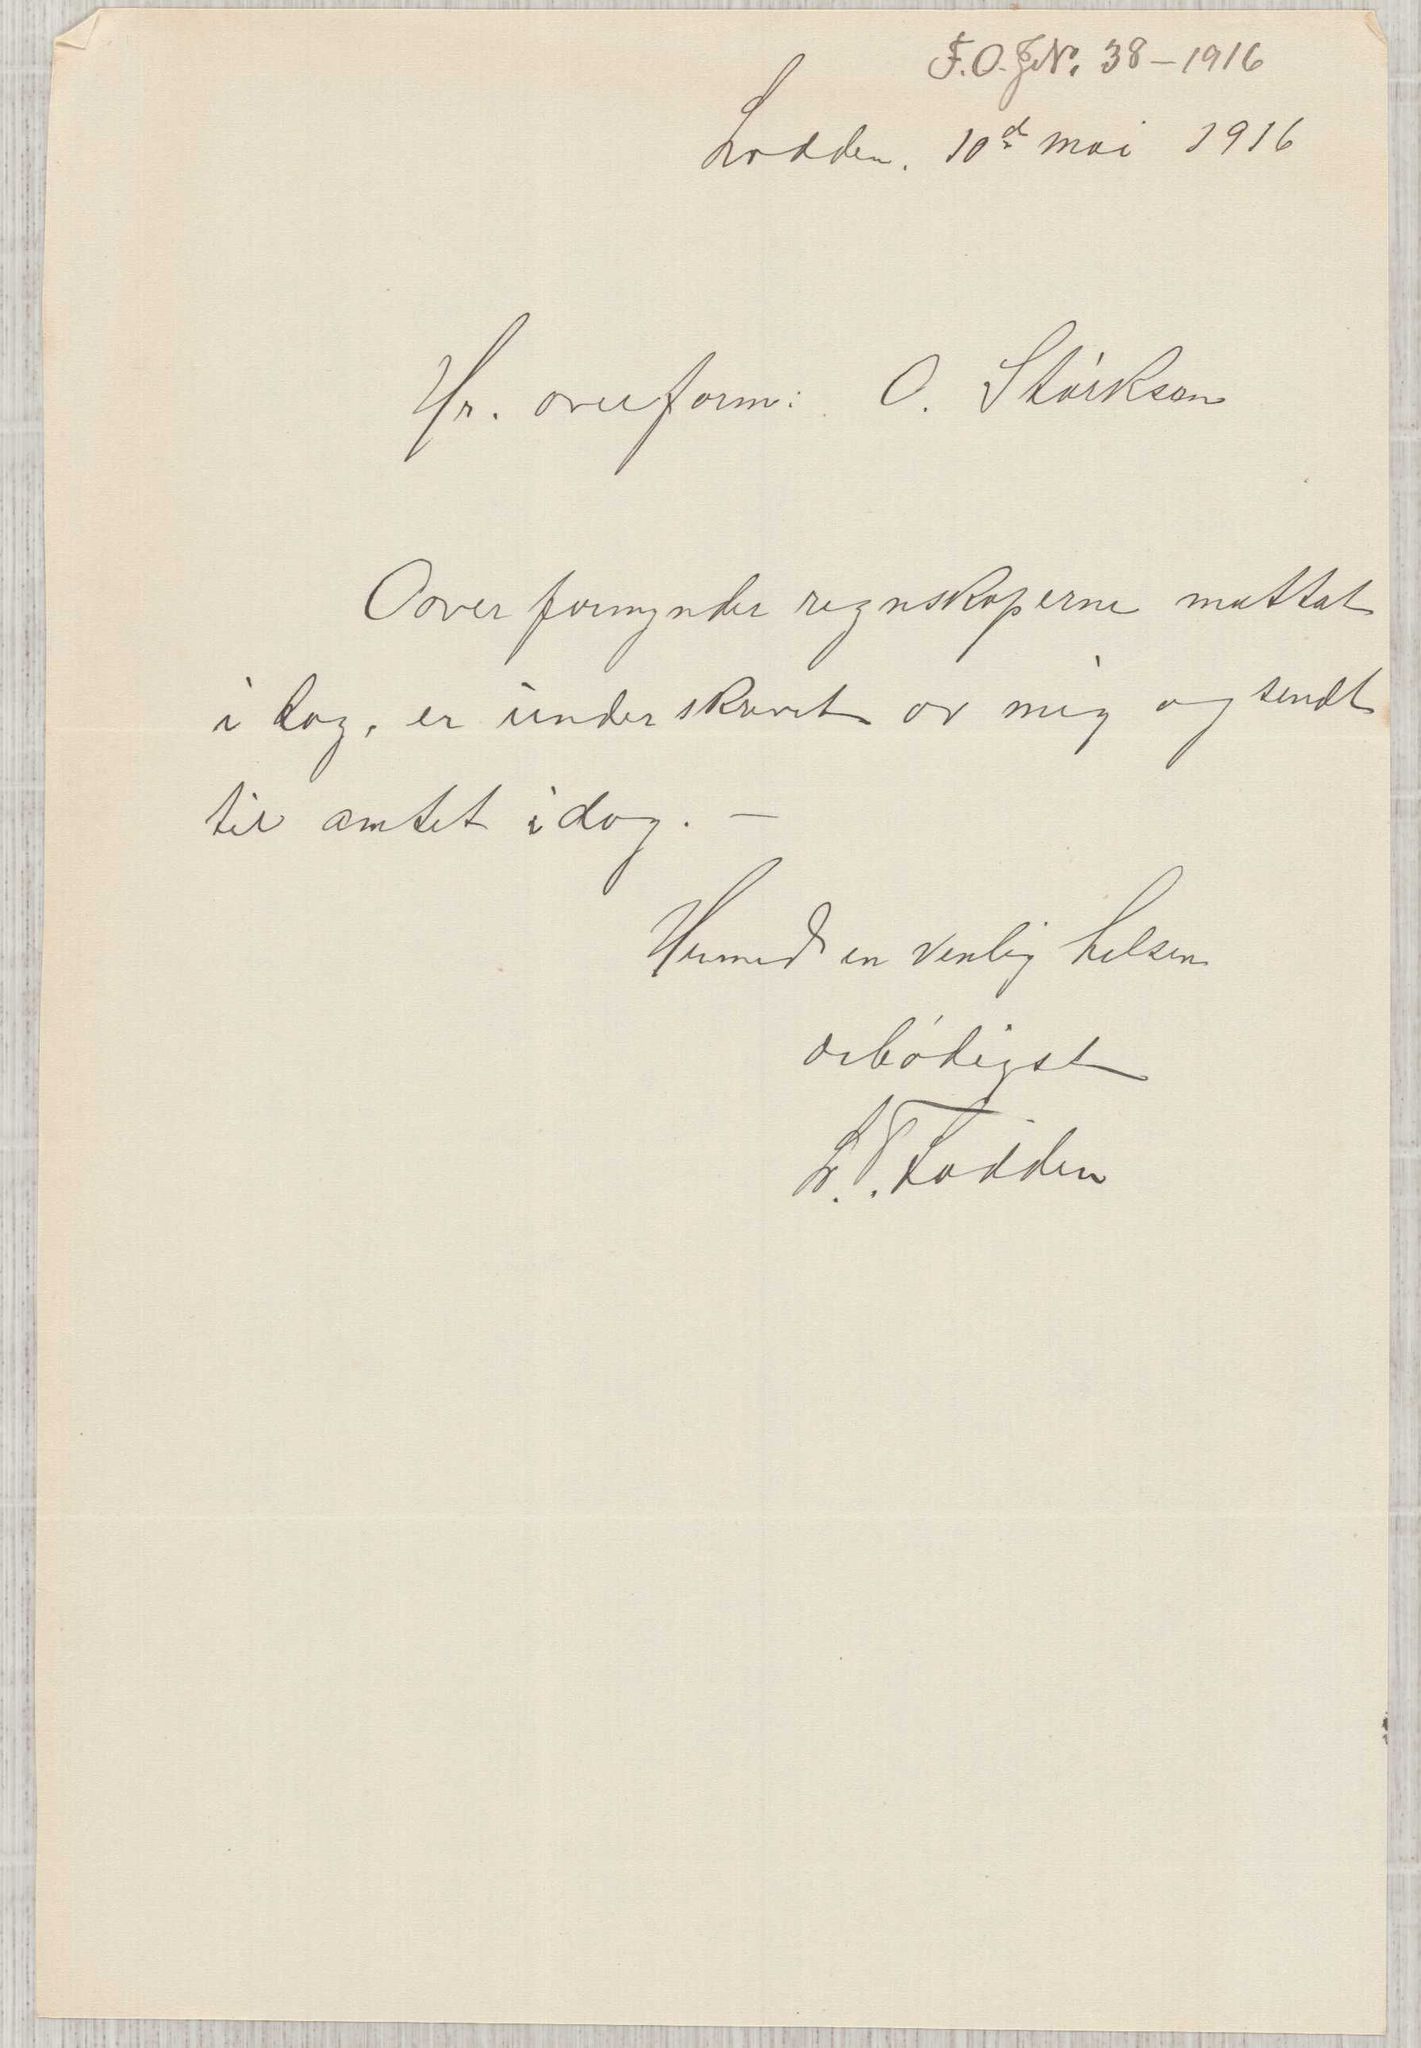 F.O.J.No. 38-1916
Lodden. 10d mai 1916
Hr. overform: O. Störksen
Overformynder regnskaperne mottat
i dag, er underskrevet av mig og sendt
til amtet idag. –
Hermed en venlig helsen
ærbødigst
L. T. Lodden